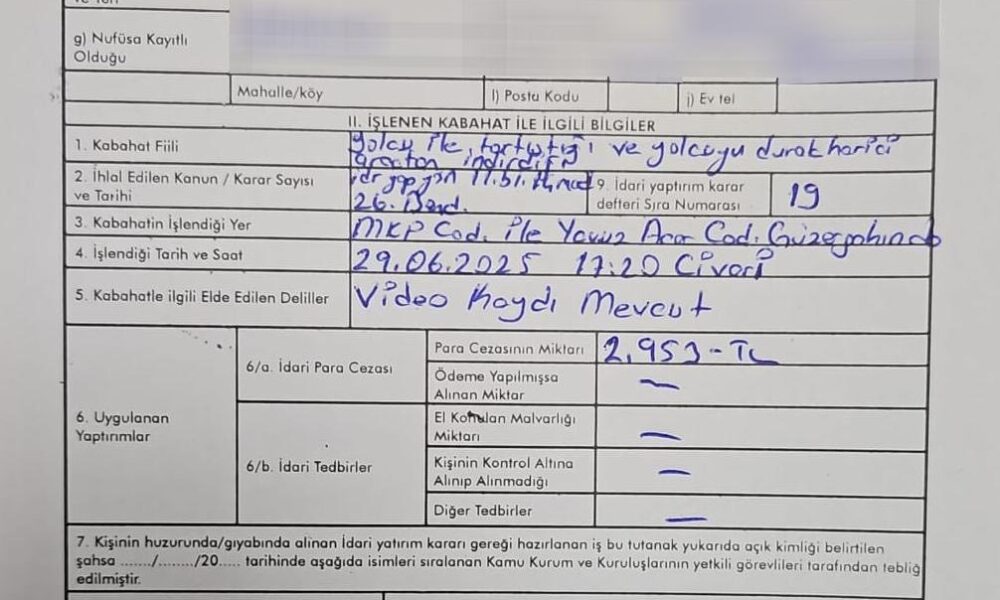 g) Nufüsa Kayıtlı
Olduğu
Mahalle/köy
I) Posta Kodu
j) Ev tel
II. İŞLENEN KABAHAT İLE İLGİLİ BİLGİLER
1. Kabahat Fiili
yolcu ile tartıştığı ve yolcuyu durak harici
araçtan indirdiği
2. İhlal Edilen Kanun / Karar Sayısı
ve Tarihi
26. Bend.
9. İdari yaptırım karar
defteri Sıra Numarası
19
3. Kabahatin İşlendiği Yer
MKP Cad. ile Yavuz Acar Cad. Güzergahında
4. İşlendiği Tarih ve Saat
29.06.2025 17:20 Civarı
5. Kabahatle ilgili Elde Edilen Deliller
Video Kaydı Mevcut
6. Uygulanan
Yaptırımlar
6/a. İdari Para Cezası
Para Cezasının Miktarı
2.953-TL
Ödeme Yapılmışsa
Alınan Miktar
—
6/b. İdari Tedbirler
El Konulan Malvarlığı
Miktarı
—
Kişinin Kontrol Altına
Alınıp Alınmadığı
—
Diğer Tedbirler
—
7. Kişinin huzurunda/gıyabında alınan İdari yatırım kararı gereği hazırlanan iş bu tutanak yukarıda açık kimliği belirtilen
şahsa ......./......../20..... tarihinde aşağıda isimleri sıralanan Kamu Kurum ve Kuruluşlarının yetkili görevlileri tarafından tebliğ
edilmiştir.